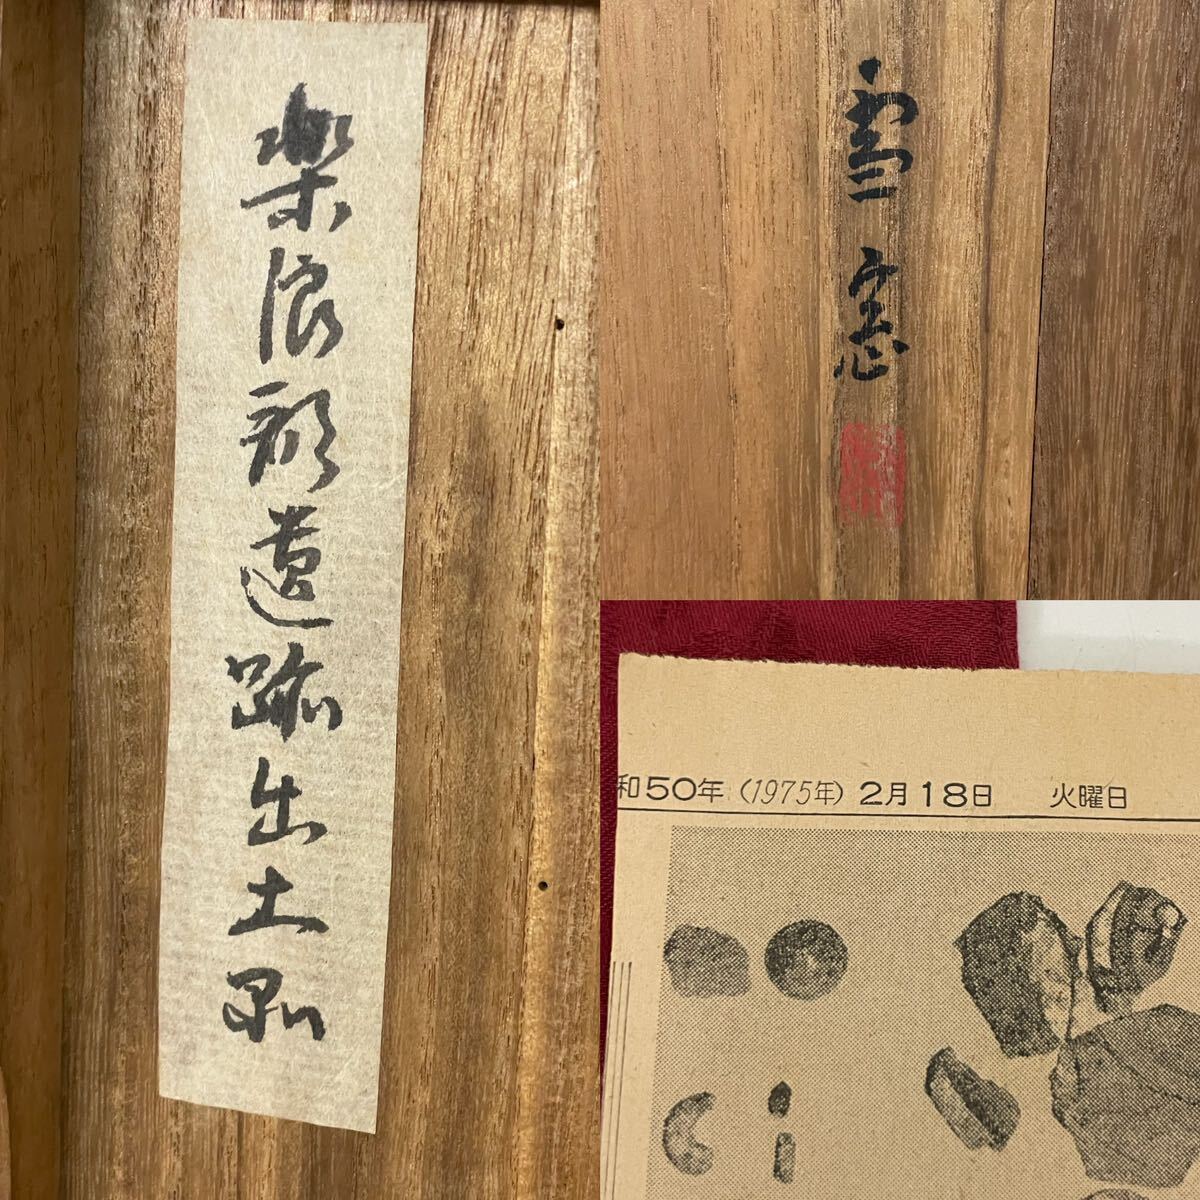 楽浪郡遺跡出土品
雪窓
和50年（1975年）2月18日　火曜日